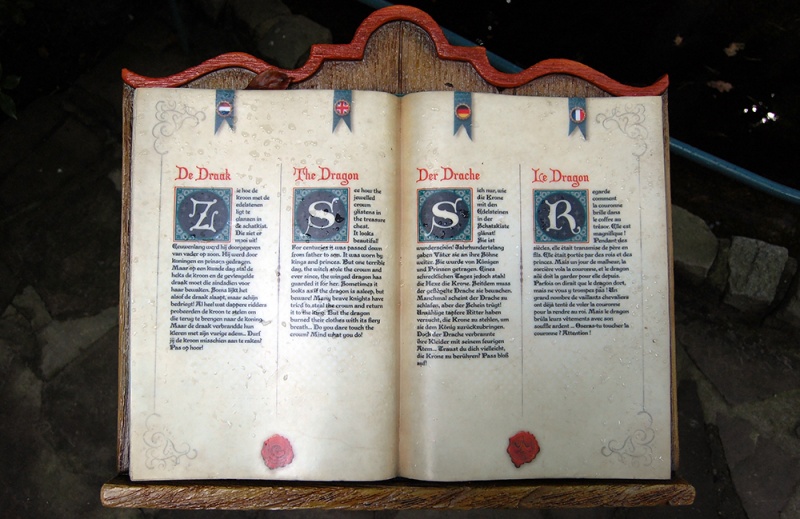 De Draak
Zie hoe de
kroon met de
edelstenen
ligt te
glanzen in
de schatkist.
Die ziet er
mooi uit!
Eeuwenlang werd hij doorgegeven
van vader op zoon. Hij werd door
koningen en prinsen gedragen.
Maar op een kwade dag stal de
heks de kroon en de gevleugelde
draak moet die sindsdien voor
haar bewaken. Soms lijkt het
alsof de draak slaapt, maar schijn
bedriegt! Al heel wat dappere ridders
probeerden de kroon te stelen om
die terug te brengen naar de koning.
Maar de draak verbrandde hun
kleren met zijn vurige adem... Durf
jij de kroon misschien aan te raken?
Pas op hoor!
The Dragon
See how the
jewelled
crown
glistens in
the treasure
chest.
It looks
beautiful!
For centuries it was passed down
from father to son. It was worn by
kings and princes. But one terrible
day, the witch stole the crown and
ever since, the winged dragon has
guarded it for her. Sometimes it
looks as if the dragon is asleep, but
beware! Many brave knights have
tried to steal the crown and return
it to the king. But the dragon
burned their clothes with its fiery
breath... Do you dare touch the
crown? Mind what you do!
Der Drache
Sieh nur, wie
die Krone
mit den
Edelsteinen
in der
Schatzkiste
glänzt!
Sie ist
wunderschön! Jahrhundertelang
gaben Väter sie an ihre Söhne
weiter. Sie wurde von Königen
und Prinzen getragen. Eines
schrecklichen Tages jedoch stahl
die Hexe die Krone. Seitdem muss
der geflügelte Drache sie bewachen.
Manchmal scheint der Drache zu
schlafen, aber der Schein trügt!
Unzählige tapfere Ritter haben
versucht, die Krone zu stehlen, um
sie dem König zurückzubringen.
Doch der Drache verbrannte
ihre Kleider mit seinem feurigen
Atem... Traust du dich vielleicht,
die Krone zu berühren? Pass bloß
auf!
Le Dragon
Regarde
comment
la couronne
brille dans
le coffre au
trésor. Elle est
magnifique !
Pendant des
siècles, elle était transmise de père en
fils. Elle était portée par des rois et des
princes. Mais un jour de malheur, la
sorcière vola la couronne, et le dragon
ailé doit la garder pour elle depuis.
Parfois on dirait que le dragon dort,
mais ne vous y trompez pas ! Un
grand nombre de vaillants chevaliers
ont déjà tenté de voler la couronne
pour la rendre au roi. Mais le dragon
brûla leurs vêtements avec son
souffle ardent ... Oseras-tu toucher la
couronne ? Attention !